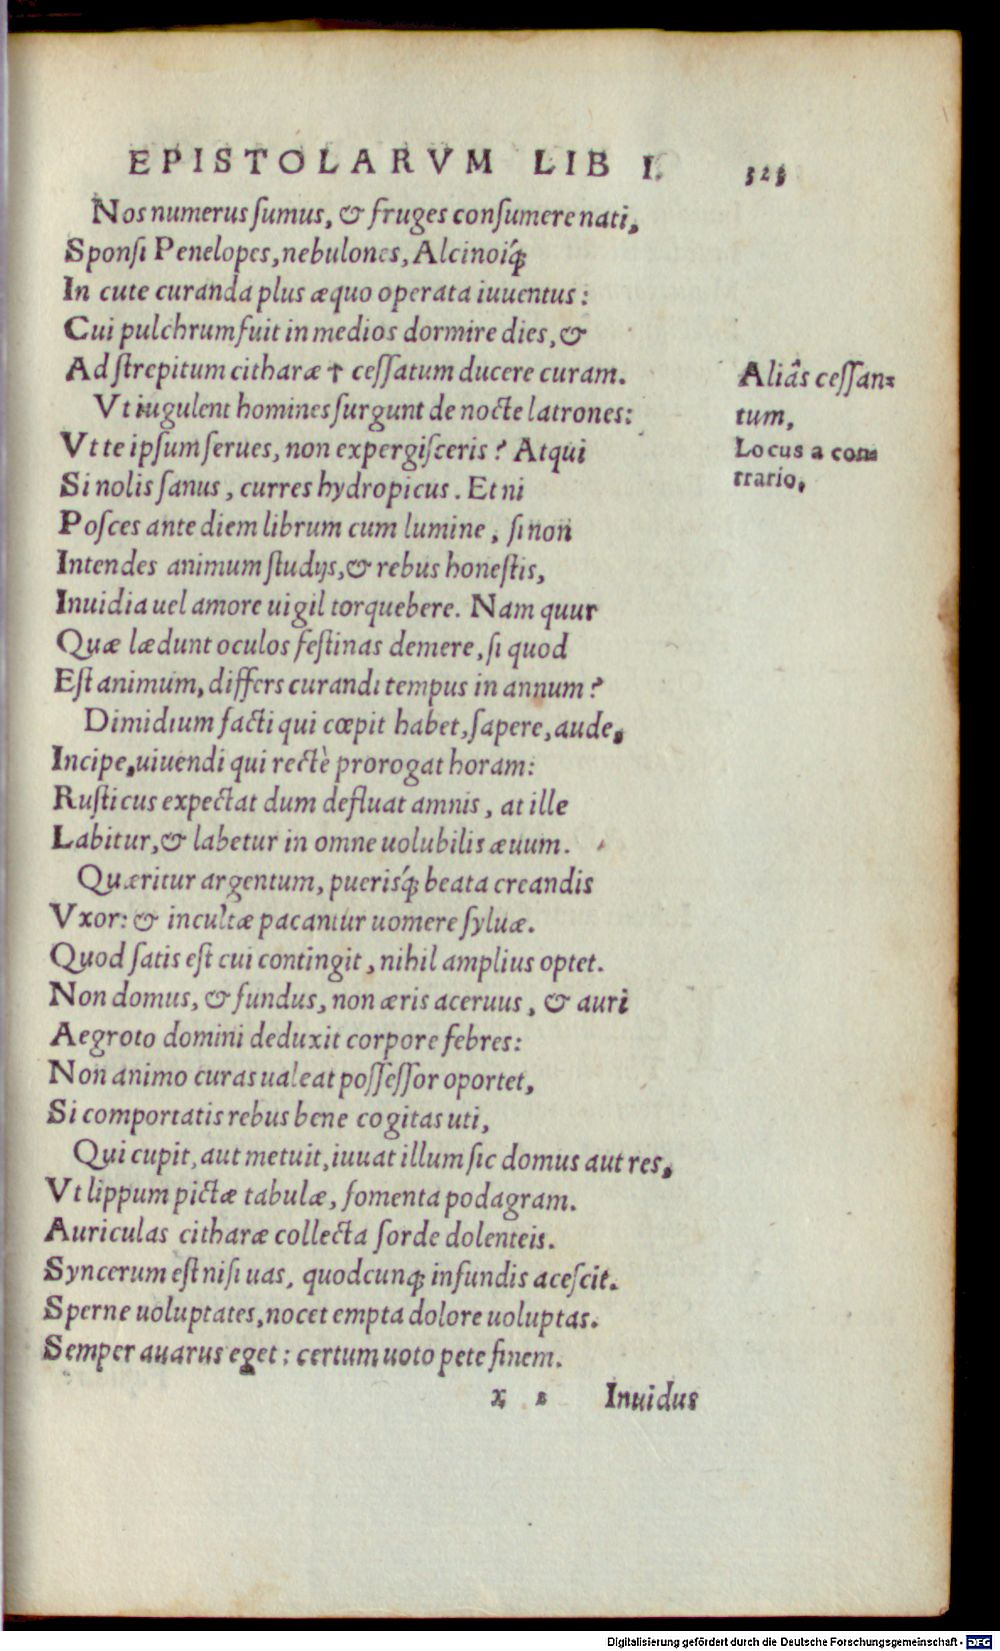 EPISTOLARVM LIB I. 323
Nos numerus sumus, & fruges consumere nati,
Sponsi Penelopes, nebulones, Alcinoiq́;
In cute curanda plus æquo operata iuuentus:
Cui pulchrum fuit in medios dormire dies, &
Ad strepitum citharæ † cessatum ducere curam.
Vt iugulent homines surgunt de nocte latrones:
Vt te ipsum serues, non expergisceris? Atqui
Si nolis sanus, curres hydropicus. Et ni
Posces ante diem librum cum lumine, si non
Intendes animum studijs, & rebus honestis,
Inuidia uel amore uigil torquebere. Nam quur
Quæ lædunt oculos festinas demere, si quod
Est animum, differs curandi tempus in annum?
Dimidium facti qui cœpit habet, sapere, aude,
Incipe, uiuendi qui rectè prorogat horam:
Rusticus expectat dum defluat amnis, at ille
Labitur, & labetur in omne uolubilis æuum.
Quæritur argentum, puerisq́; beata creandis
Vxor: & incultæ pacantur uomere syluæ.
Quod satis est cui contingit, nihil amplius optet.
Non domus, & fundus, non æris aceruus, & auri
Aegroto domini deduxit corpore febres:
Non animo curas ualeat possessor oportet,
Si comportatis rebus bene cogitas uti,
Qui cupit, aut metuit, iuuat illum sic domus aut res,
Vt lippum pictæ tabulæ, fomenta podagram.
Auriculas citharæ collecta sorde dolenteis.
Syncerum est nisi uas, quodcunq; infundis acescit.
Sperne uoluptates, nocet empta dolore uoluptas.
Semper auarus eget: certum uoto pete finem.
x 2 Inuidus
Aliâs cessan=
tum,
Locus a con=
trario,
Digitalisierung gefördert durch die Deutsche Forschungsgemeinschaft - DFG